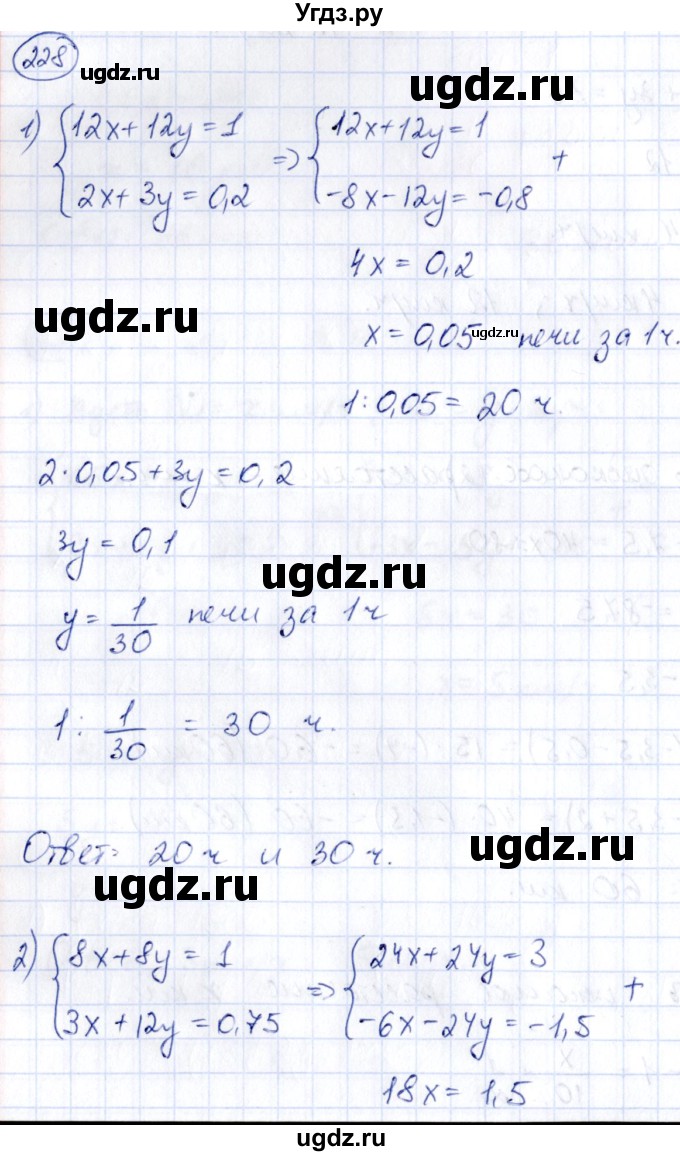 Угдз.ру
228
ugdz.ru
ugdz.ru
1) { 12x + 12y = 1 => { 12x + 12y = 1 +
2x + 3y = 0,2 -8x - 12y = -0,8
4x = 0,2
ugdz.ru
x = 0,05 ugdz.ru печи за 1ч.
1 : 0,05 = 20 ч.
2·0,05 + 3y = 0,2
3y = 0,1
ugdz.ru
y = 1/30 печи за 1ч
1 : 1/30 = 30 ч.
Ответ: 20ч и 30ч.
ugdz.ru
ugdz.ru
2) { 8x + 8y = 1 => { 24x + 24y = 3 +
3x + 12y = 0,75 -6x - 24y = -1,5
18x = 1,5
ugdz.ru